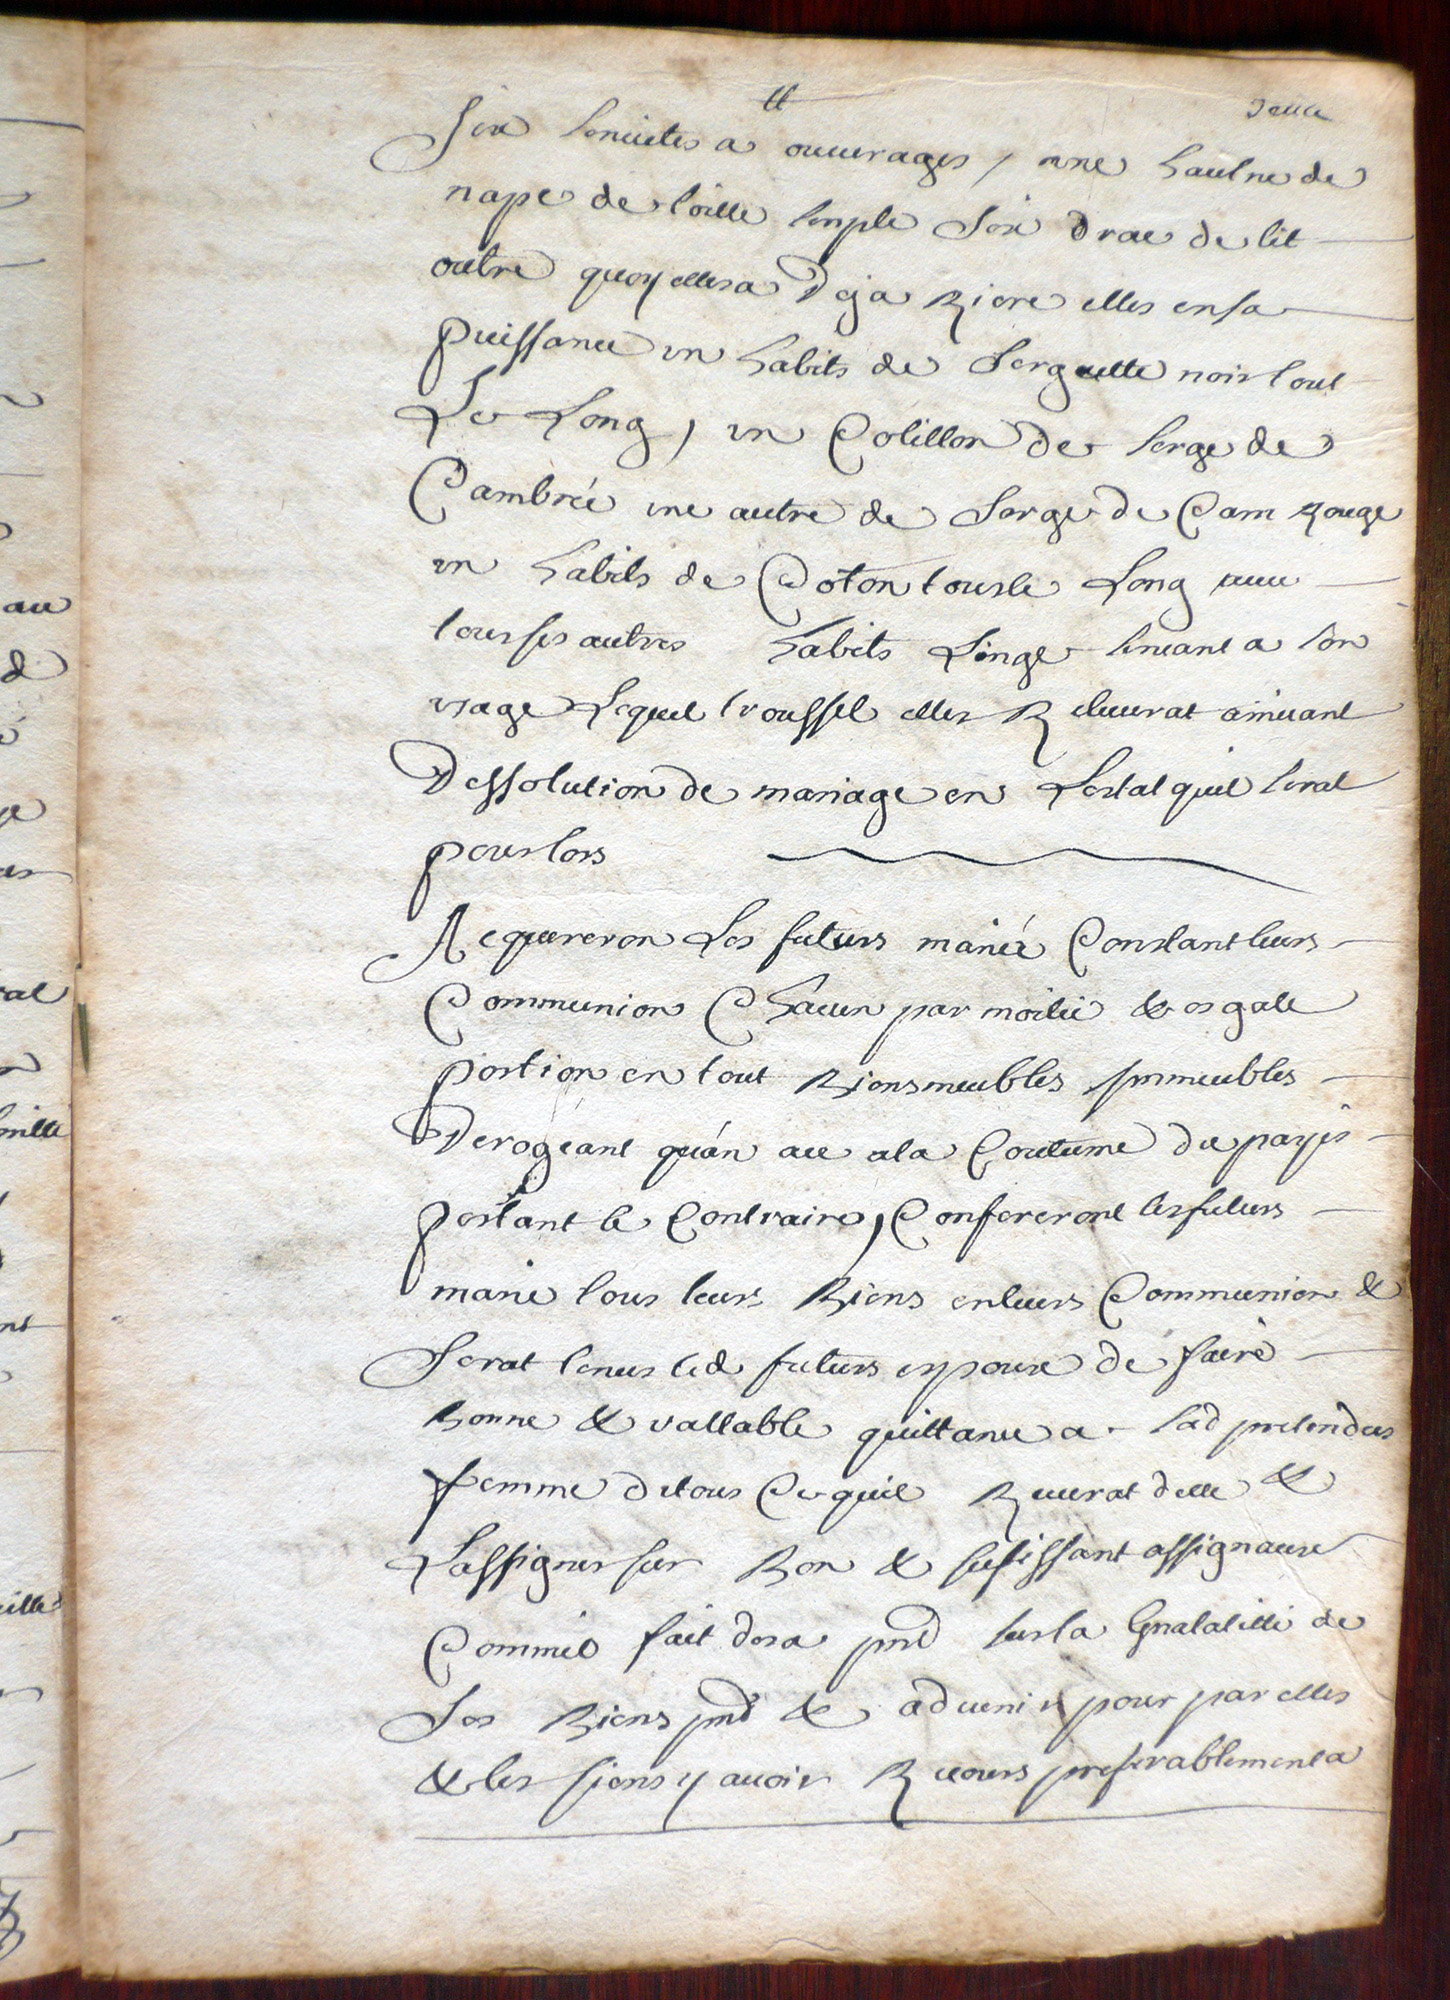 deux
Six seruietes a ouurages, une haulne de
nape de toille simple Six drac de lit
outre quoy elles a Deja Riere elles en sa
puissance un habits de Serguette noir tout
Le Long, un Cotillon de serge de
Cambrée une autre de Serge de Cam Rouge
un habits de Coton tous le Long auec
tous ses autres habits Linge seruant a son
usage Lequel troussel elles Releuerat ariuant
Dessolution de mariage en Lestat quil serat
pour lors
Acquereron Les futurs marié Constant leurs
Communion Chacun par moitié & esgale
portion en tout Biens meubles jmmeubles
Derogeant quàn ace a la Coutume du payis
portant le Contraire, Confereront les futurs
marié tous leurs Biens en leurs Communion &
Serat tenus led futurs espoux de faire
Bonne & vallable quittance a lad pretendus
femme de tous Ce quil Receurat delle &
Lassigner sur Bon & sufissant assignaux
Comme il fait des a pnt sur la gnalalitté de
Ses Biens pnt & aduenir pour par elles
& les siens y auoir Recours preferablement a